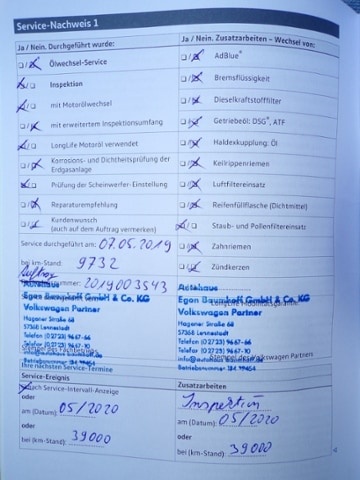 Service-Nachweis 1
Ja / Nein. Durchgeführt wurde:
Ölwechsel-Service
Inspektion
mit Motorölwechsel
mit erweitertem Inspektionsumfang
LongLife Motoröl verwendet
Korrosions- und Dichtheitsprüfung der
Erdgasanlage
Prüfung der Scheinwerfer-Einstellung
Reparaturempfehlung
Kundenwunsch
(auch auf dem Auftrag vermerken)
Service durchgeführt am: 07.05.2019
bei km-Stand: 9732
Auftrag
nummer: 2019003543
Autohaus
Egon Baumhoff GmbH & Co. KG
Volkswagen Partner
Hagener Straße 68
57368 Lennestadt
Telefon (0 27 23) 96 67-66
Telefax (0 27 23) 96 67-10
Ihre nächsten Service-Termine
Service-Ereignis
nach Service-Intervall-Anzeige
oder
am (Datum): 05/2020
oder
bei (km-Stand): 39000
Ja / Nein. Zusatzarbeiten – Wechsel von:
AdBlue®
Bremsflüssigkeit
Dieselkraftstofffilter
Getriebeöl: DSG®, ATF
Haldexkupplung: Öl
Keilrippenriemen
Luftfiltereinsatz
Reifenfüllflasche (Dichtmittel)
Staub- und Pollenfiltereinsatz
Zahnriemen
Zündkerzen
LongLife Mobilitätsgarantie
Autohaus
Egon Baumhoff GmbH & Co. KG
Volkswagen Partner
Hagener Straße 68
57368 Lennestadt
Telefon (0 27 23) 96 67-66
Telefax (0 27 23) 96 67-10
des Volkswagen Partners
Zusatzarbeiten
Inspektion
am (Datum): 05/2020
oder
bei (km-Stand): 39000